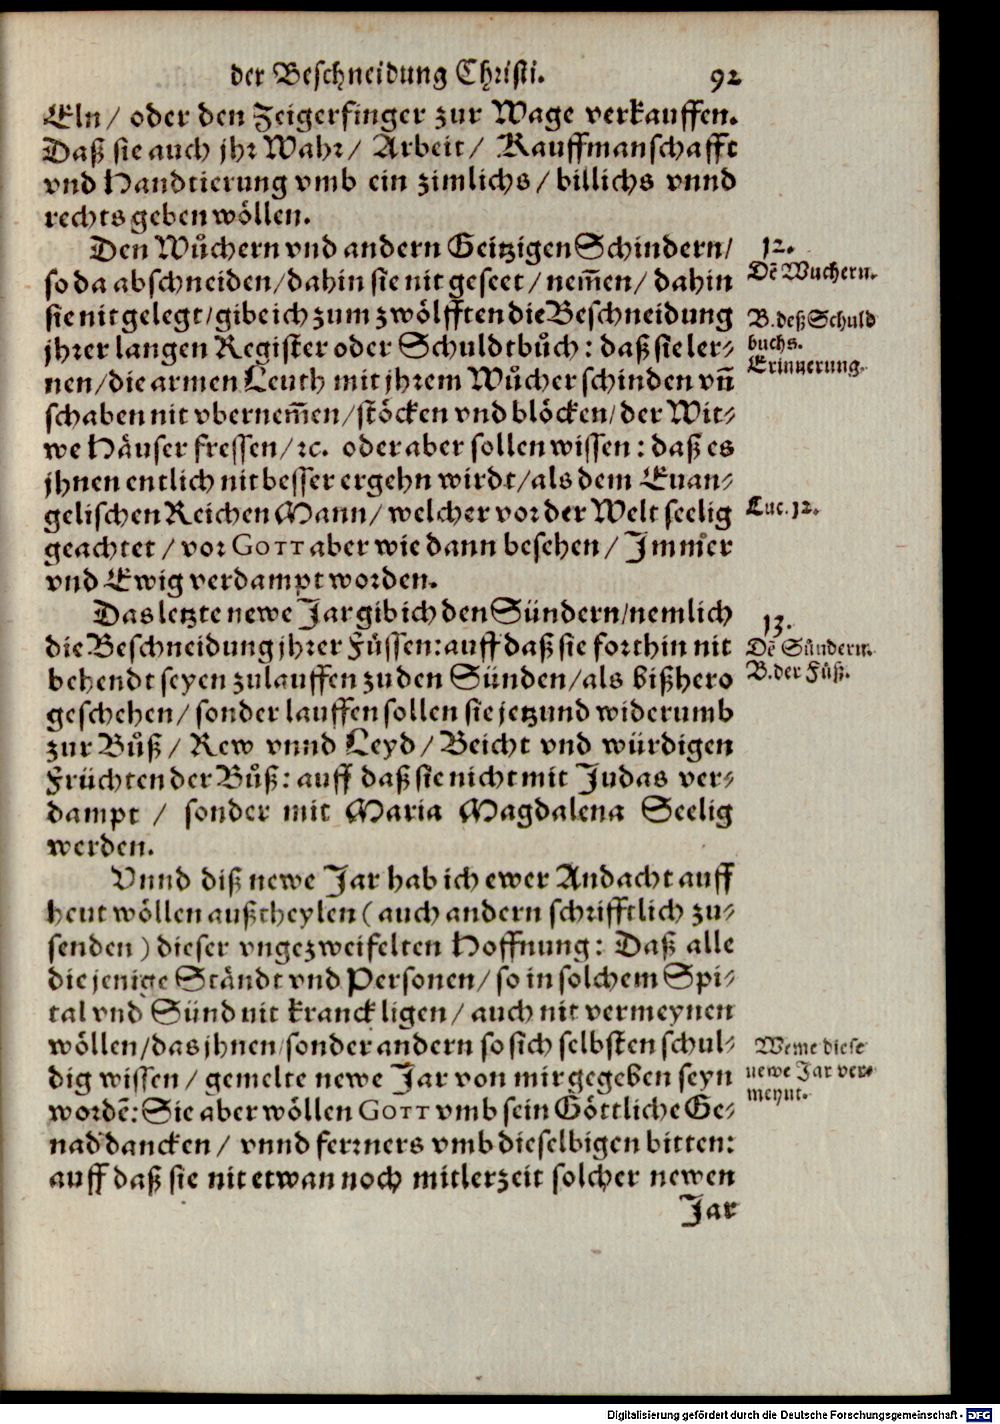 der Beschneidung Christi. 92
Eln/ oder den Zeigerfinger zur Wage verkauffen.
Daß sie auch jhr Wahr/ Arbeit/ Kauffmanschafft
vnd Handtierung vmb ein zimlichs/ billichs vnnd
rechts geben wöllen.
Den Wůchern vnd andern Geitzigen Schindern/
so da abschneiden/dahin sie nit geseet/ nem̃en/ dahin
sie nit gelegt/gibe ich zum zwölfften die Beschneidung
jhrer langen Register oder Schuldtbůch: daß sie ler-
nen/die armen Leuth mit jhrem Wůcher schinden vñ
schaben nit vbernem̃en/stöcken vnd blöcken/der Wit-
we Häuser fressen/ꝛc. oder aber sollen wissen: daß es
jhnen entlich nit besser ergehn wirdt/als dem Euan-
gelischen Reichen Mann/ welcher vor der Welt seelig
geachtet/ vor GOTT aber wie dann besehen/ Im̃er
vnd Ewig verdampt worden.
12.
Dẽ Wuchern.
B. deß Schuld
buchs.
Erinnerung.
Luc. 12.
Das letzte newe Jar gib ich den Sündern/nemlich
die Beschneidung jhrer Füssen: auff daß sie forthin nit
behendt seyen zulauffen zu den Sünden/als bißhero
geschehen/ sonder lauffen sollen sie jetzund widerumb
zur Bůß/ Rew vnnd Leyd/ Beicht vnd würdigen
Früchten der Bůß: auff daß sie nicht mit Judas ver-
dampt/ sonder mit Maria Magdalena Seelig
werden.
13.
Dẽ Sündern.
B. der Füß.
Vnnd diß newe Jar hab ich ewer Andacht auff
heut wöllen außtheylen (auch andern schrifftlich zu-
senden) dieser vngezweifelten Hoffnung: Daß alle
die jenige Ständt vnd Personen/ so in solchem Spi-
tal vnd Sünd nit kranck ligen/ auch nit vermeynen
wöllen/das jhnen/sonder andern so sich selbsten schul-
dig wissen/ gemelte newe Jar von mir gegeben seyn
wordẽ: Sie aber wöllen GOTT vmb sein Göttliche Ge-
nad dancken/ vnnd ferrners vmb dieselbigen bitten:
auff daß sie nit etwan noch mitlerzeit solcher newen
Jar
Weme diese
newe Jar ver-
meynt.
Digitalisierung gefördert durch die Deutsche Forschungsgemeinschaft - DFG